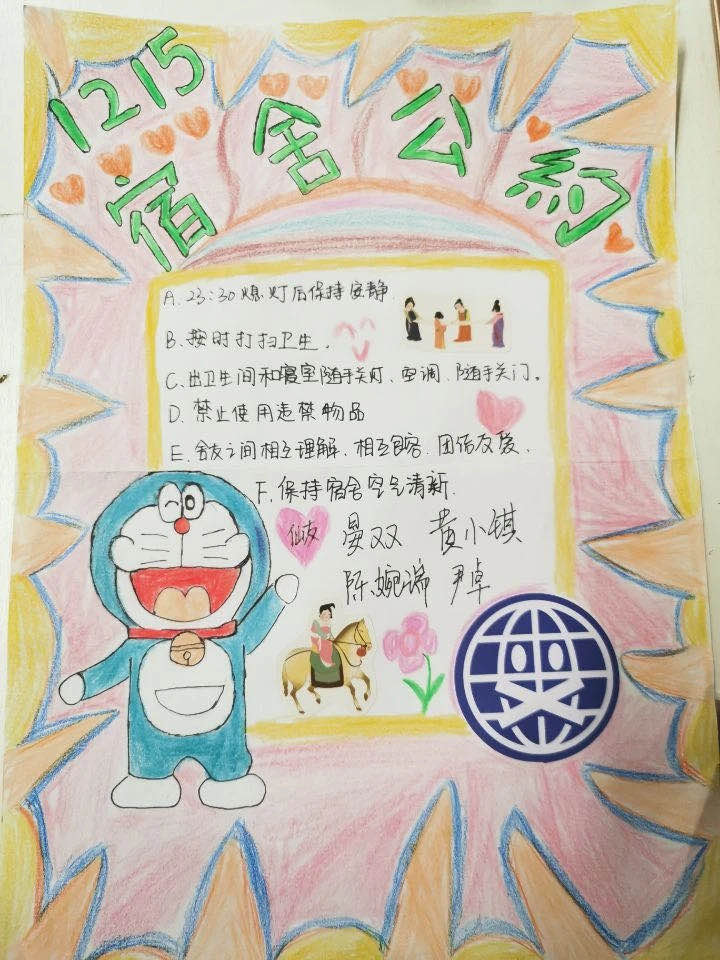 1215
宿舍公約
A. 23:30熄灯后保持安静.
B. 按时打扫卫生.
C. 出卫生间和寝室随手关灯、空调、随手关门。
D. 禁止使用违禁物品
E. 舍友之间相互理解、相互包容、团结友爱.
F. 保持宿舍空气清新.
仙女 晏双 黄小镇
陈婉瑞 尹卓